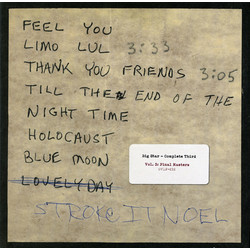 FEEL YOU
LIMO LUL 3:33
THANK YOU FRIENDS 3:05
TILL THE END OF THE
NIGHT TIME
HOLOCAUST
BLUE MOON
LOVELY DAY
STROKE IT NOEL
Big Star - Complete Third
Vol. 3: Final Masters